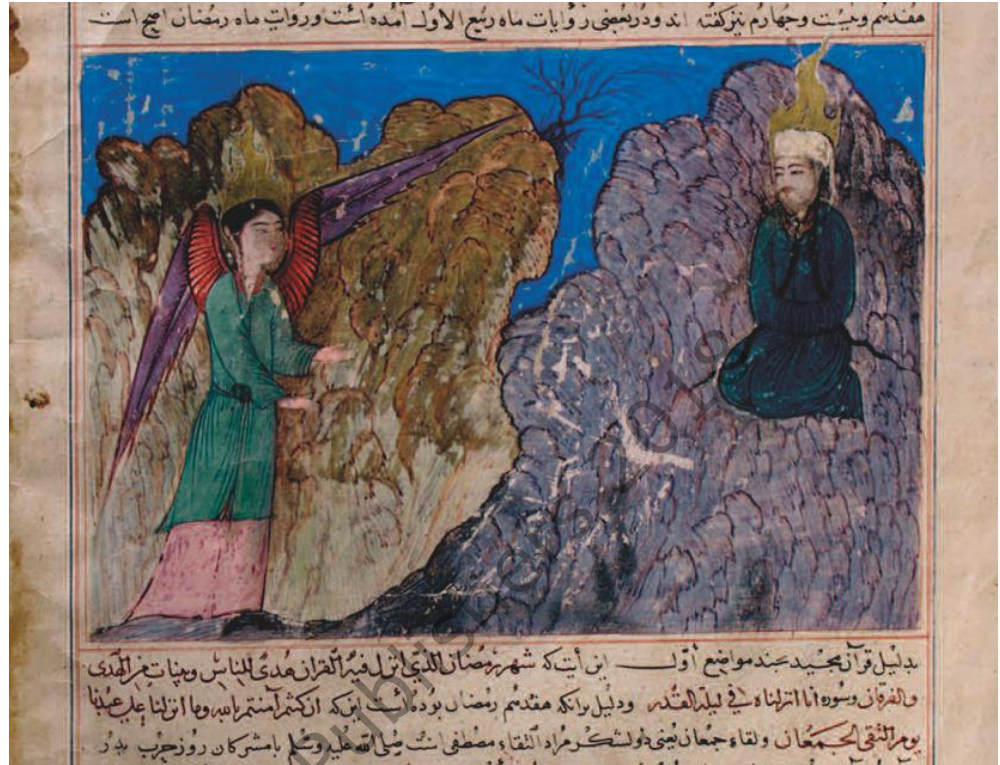 هفدهم وبیست وچهارم نیز گفته اند ودر بعضی روایات ماه ربیع الاول آمده است وروایت ماه رمضان اصح است
بدلیل قرآن مجید بچند مواضع اول این آیت که شهر رمضان الذی انزل فیه القران هدی للناس وبینات من الهدی
والفرقان وسوره انا انزلناه فی لیلة القدر ودلیل برانکه هفدهم رمضان بوده است این که ان کنتم آمنتم بالله وما انزلنا علی عبدنا
یوم التقی الجمعان ولقاء جمعان یعنی دو لشکر مراد التقاء مصطفی است صلی الله علیه وسلم بامشرکان روز حرب بدر